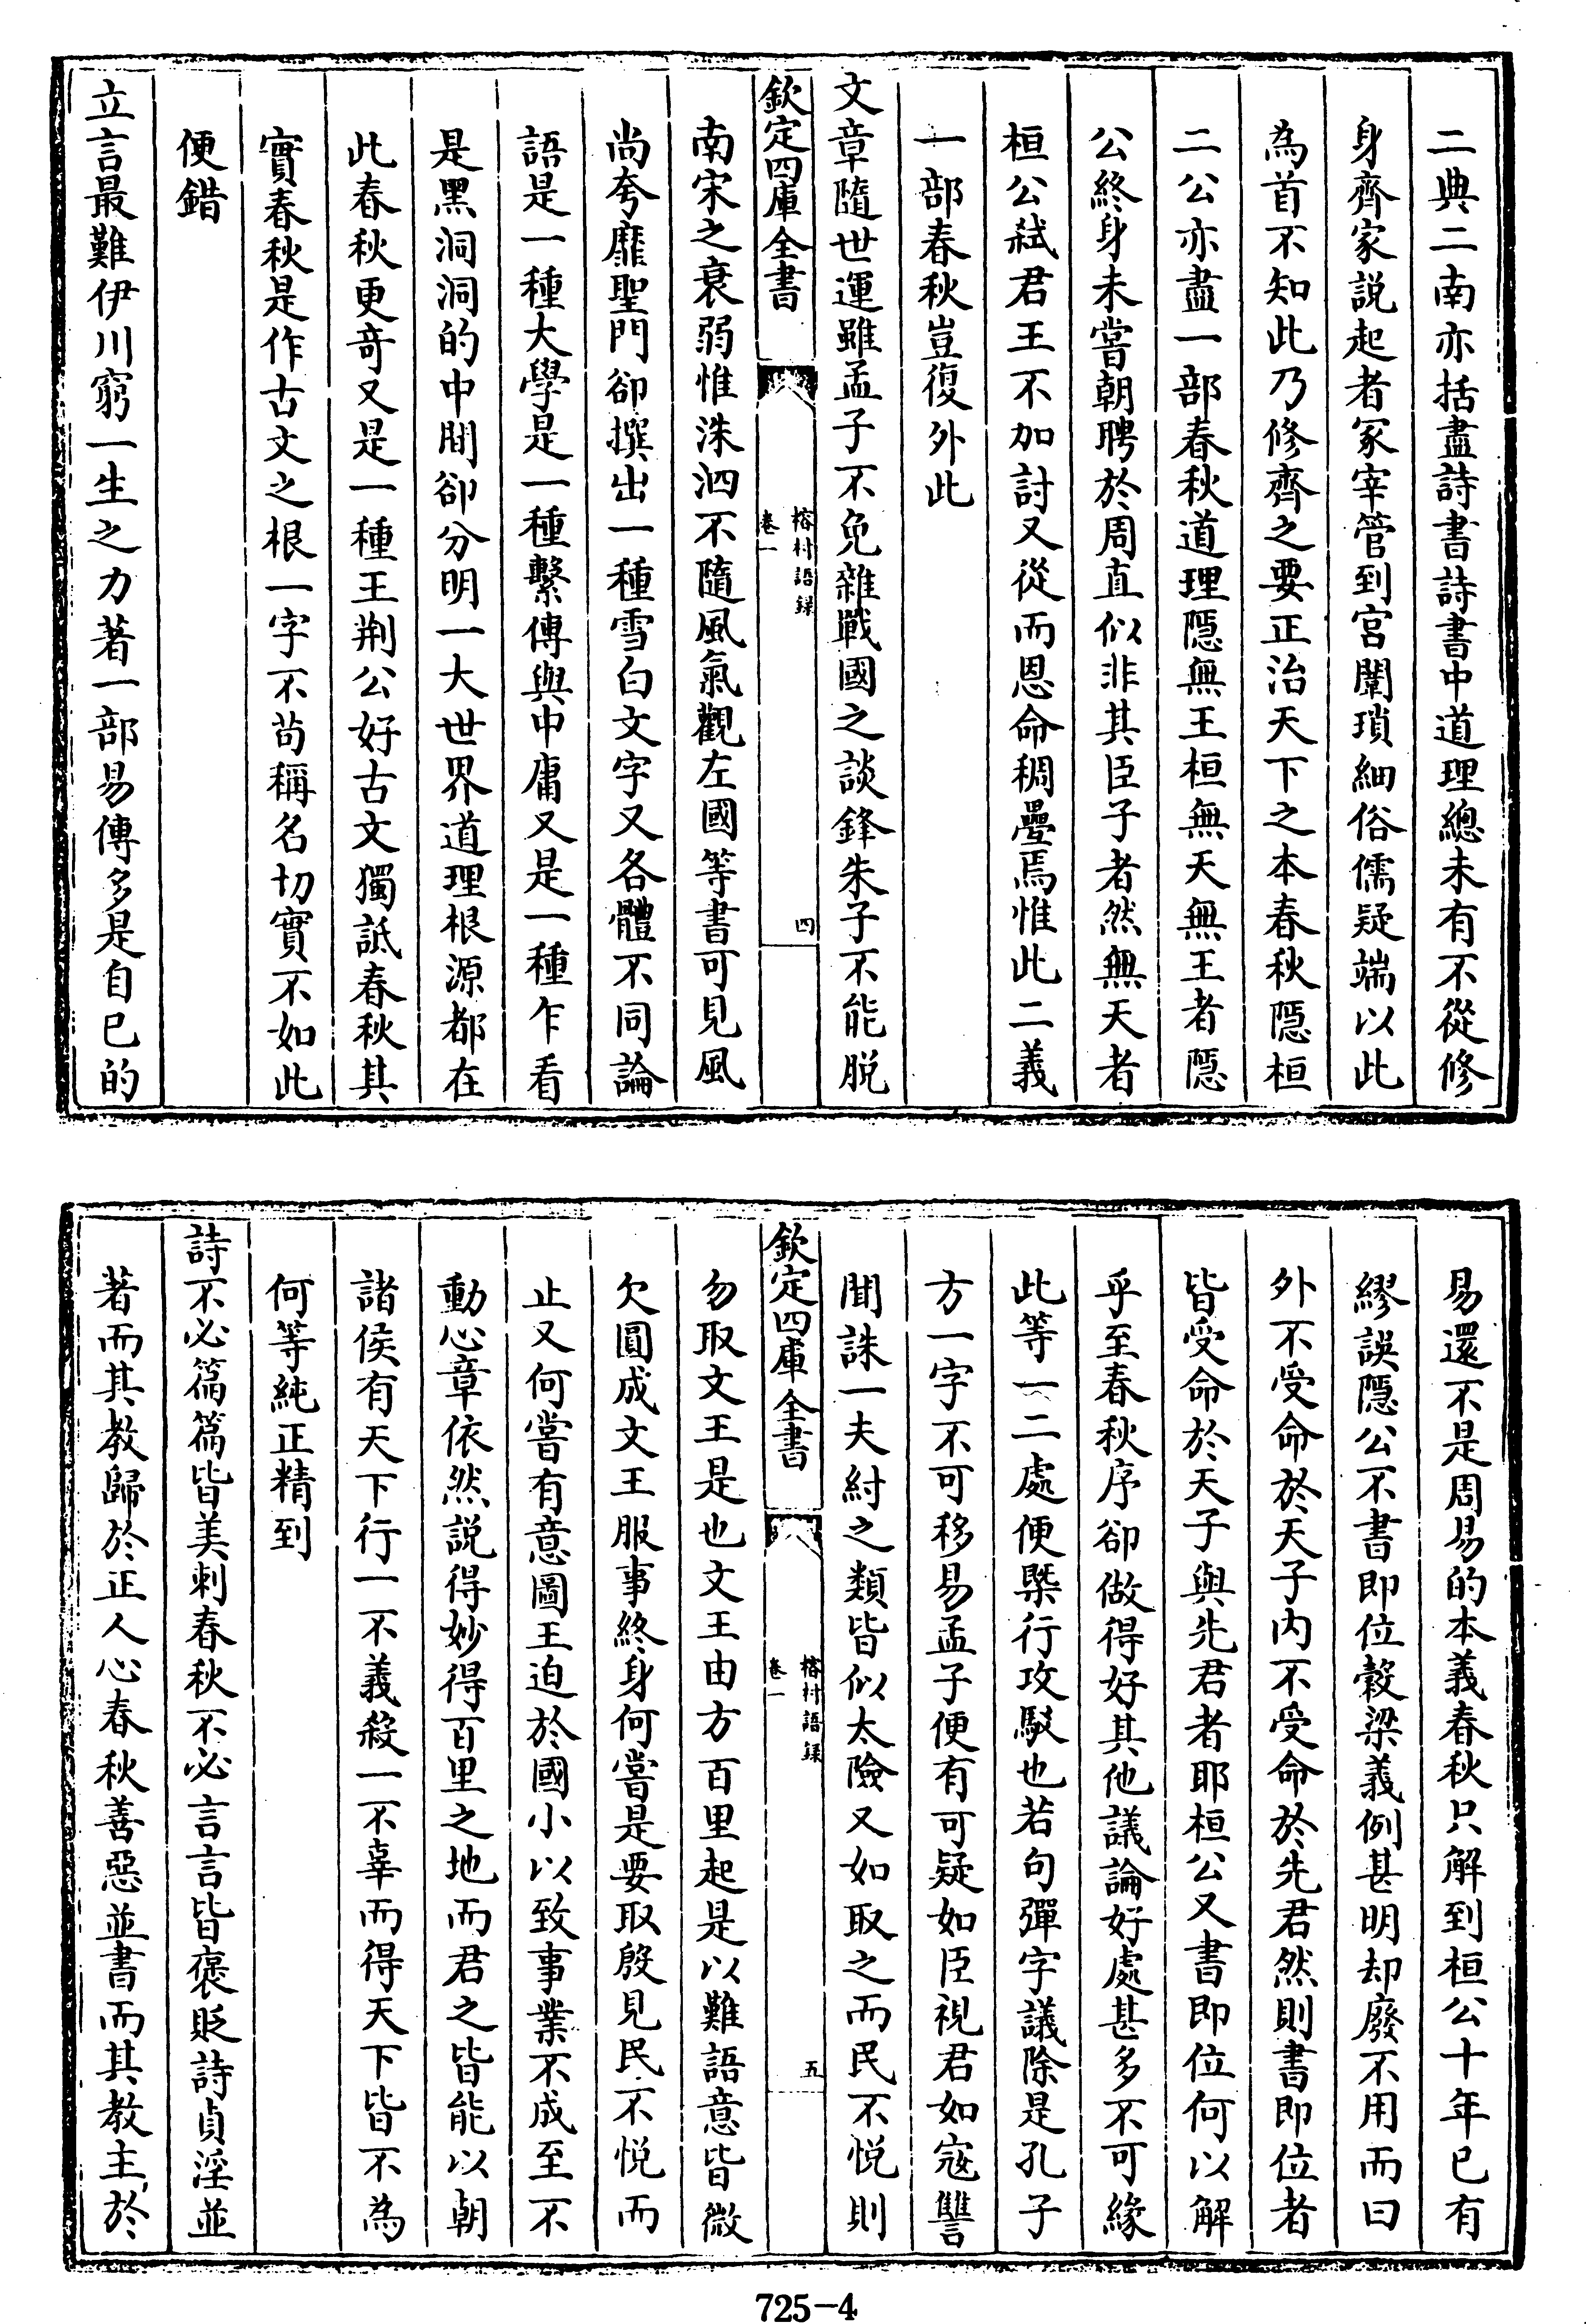 二典二南亦括盡詩書詩書中道理總未有不從修
身齊家説起者冢宰管到宫闈瑣細俗儒疑端以此
為首不知此乃修齊之要正治天下之本春秋隠桓
二公亦盡一部春秋道理隠無王桓無天無王者隠
公終身未嘗朝聘於周直似非其臣子者然無天者
桓公弑君王不加討又從而恩命稠疊焉惟此二義
一部春秋豈復外此
文章隨世運雖孟子不免雜戰國之談鋒朱子不能脱
欽定四庫全書
榕村語録
卷一
四
南宋之衰弱惟洙泗不隨風氣觀左國等書可見風
尚夸靡聖門卻撰出一種雪白文字又各體不同論
語是一種大學是一種繫傳與中庸又是一種乍看
是黑洞洞的中間卻分明一大世界道理根源都在
此春秋更奇又是一種王荆公好古文獨詆春秋其
實春秋是作古文之根一字不苟稱名切實不如此
便錯
立言最難伊川窮一生之力著一部易傳多是自已的
易還不是周易的本義春秋只解到桓公十年已有
繆誤隠公不書即位穀梁義例甚明却廢不用而曰
外不受命於天子内不受命於先君然則書即位者
皆受命於天子與先君者耶桓公又書即位何以解
乎至春秋序卻做得好其他議論好處甚多不可緣
此等一二處便槩行攻駁也若句彈字議除是孔子
方一字不可移易孟子便有可疑如臣視君如寇讐
聞誅一夫紂之類皆似太險又如取之而民不悦則
欽定四庫全書
榕村語録
卷一
五
勿取文王是也文王由方百里起是以難語意皆微
欠圓成文王服事終身何嘗是要取殷見民不悦而
止又何嘗有意圖王迫於國小以致事業不成至不
動心章依然説得妙得百里之地而君之皆能以朝
諸侯有天下行一不義殺一不辜而得天下皆不為
何等純正精到
詩不必篇篇皆美刺春秋不必言言皆褒貶詩貞淫並
著而其教歸於正人心春秋善惡並書而其教主於
725-4